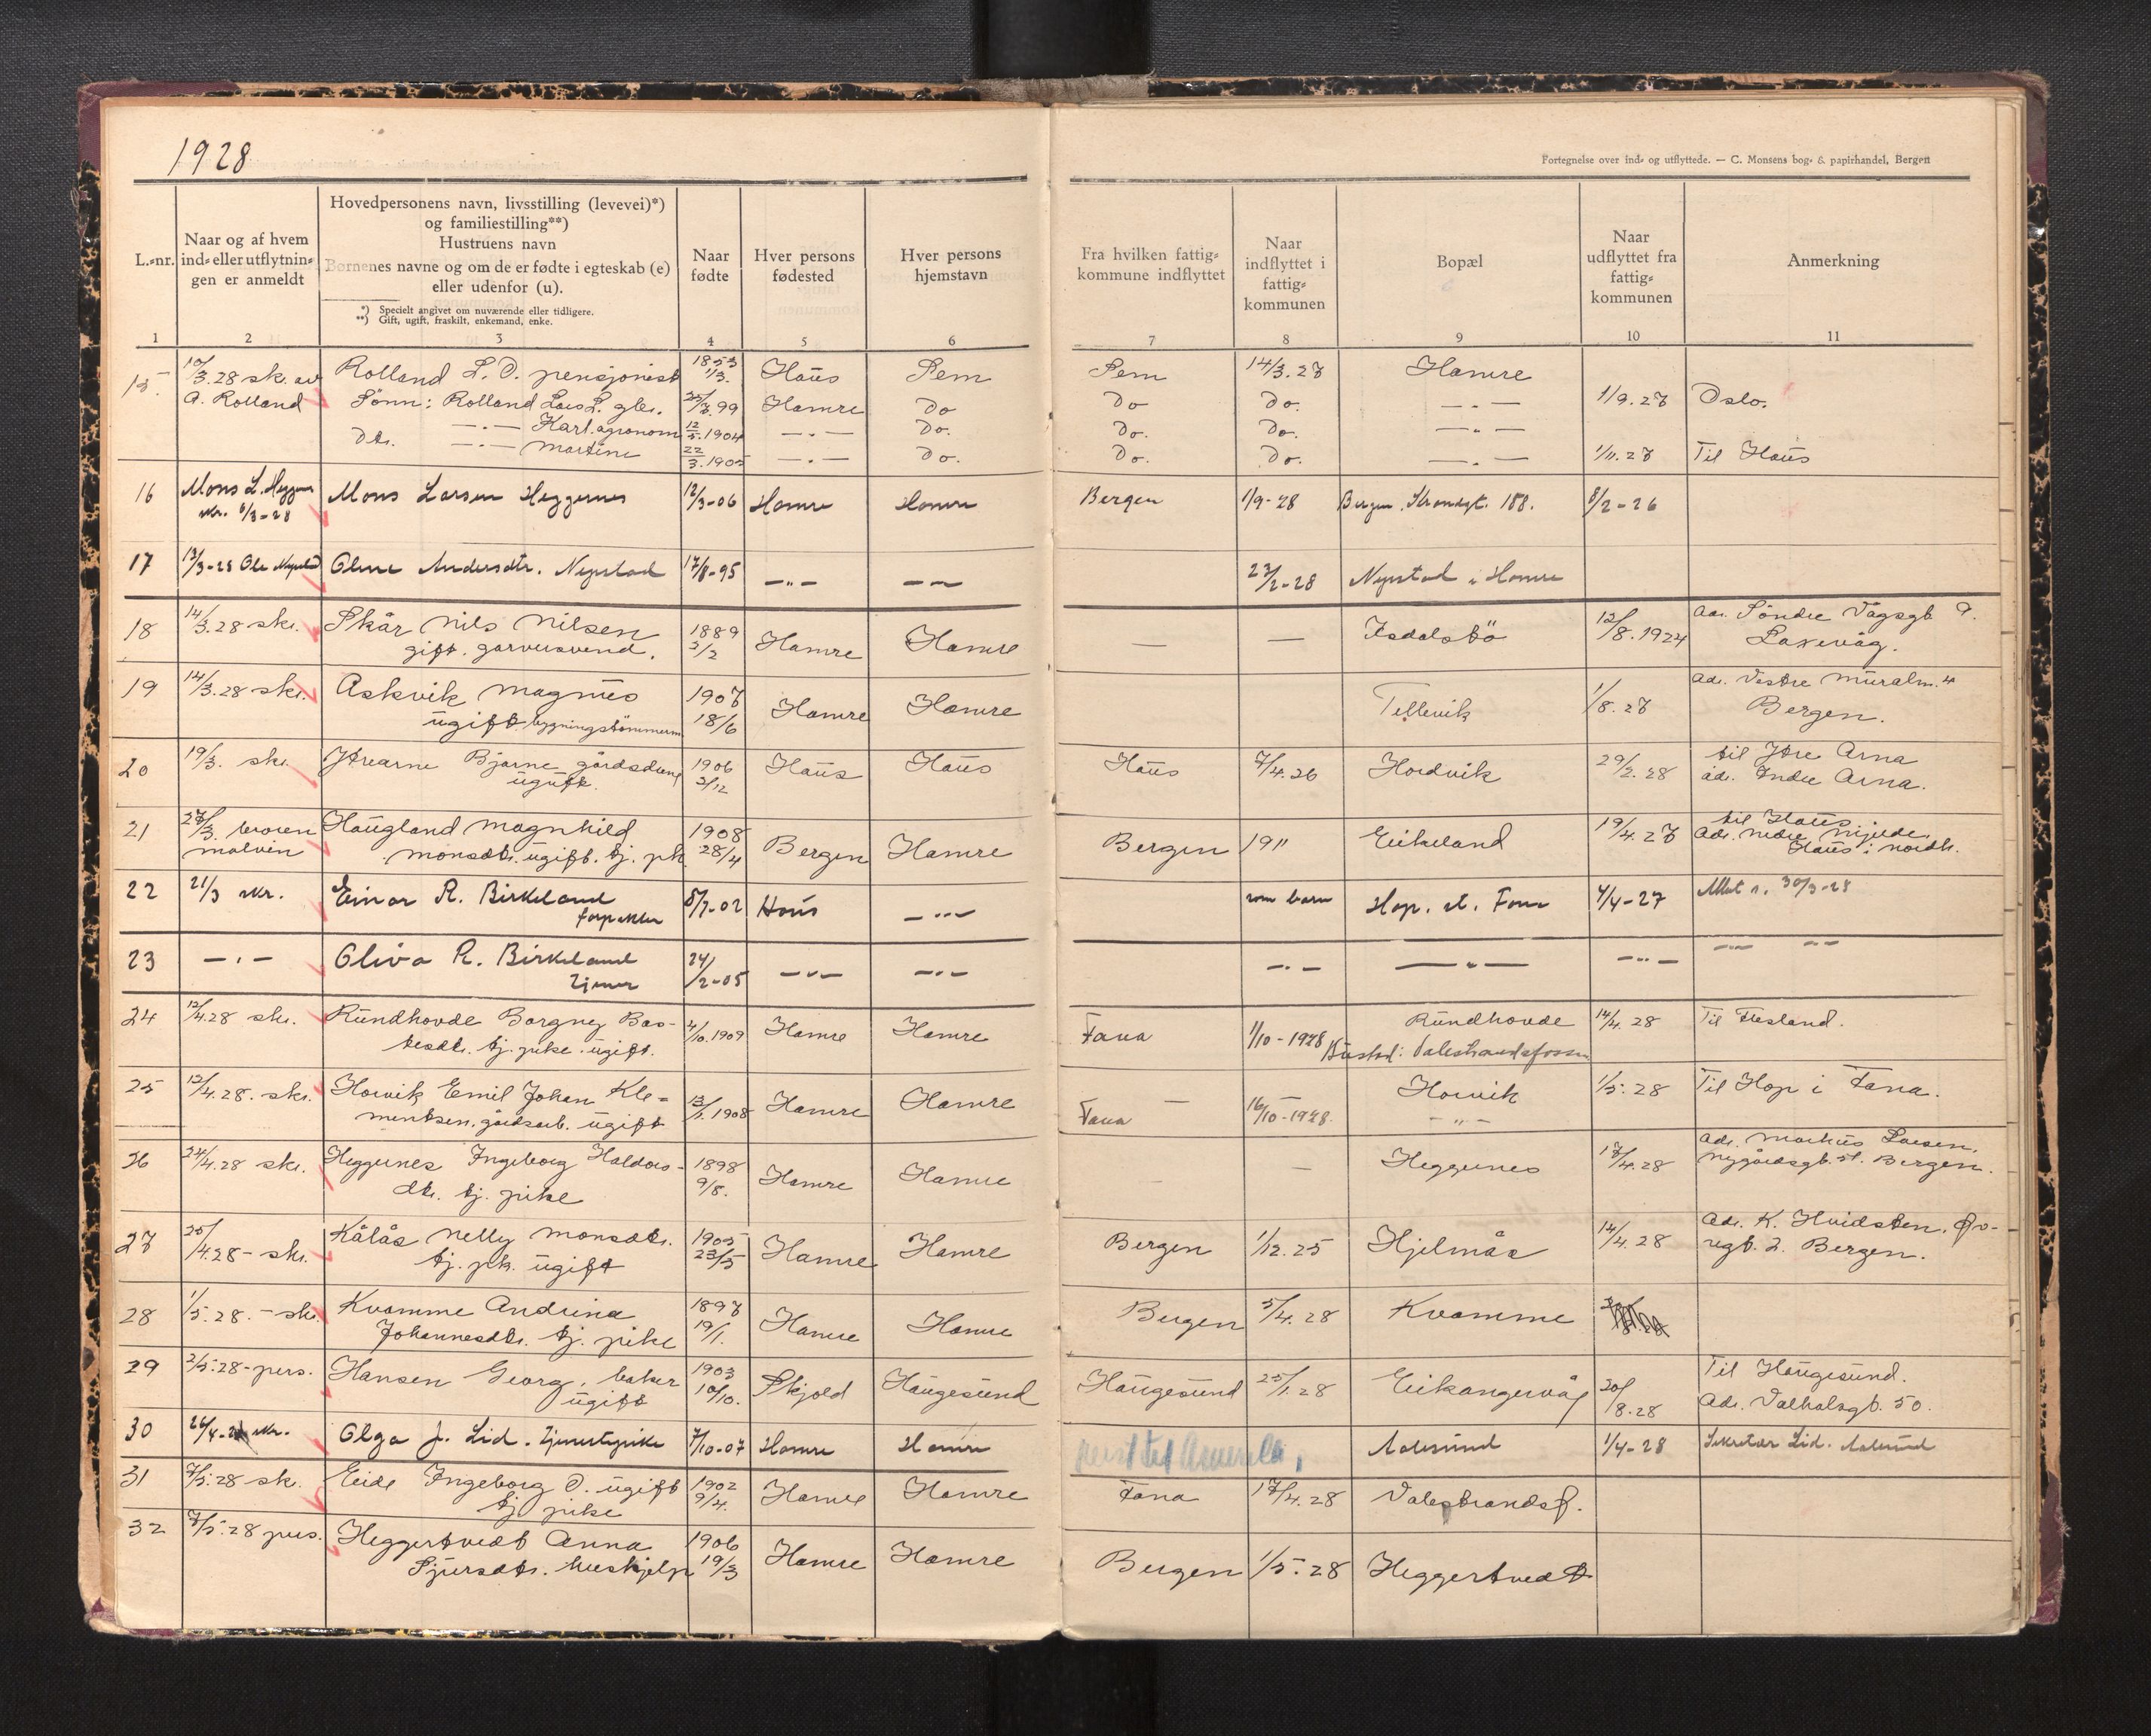 1928
Fortegnelse over ind- og utflyttede. — C. Monsens bog- & papirhandel, Bergen
L.-nr.
Naar og af hvem
ind- eller utflytnin-
gen er anmeldt
Hovedpersonens navn, livsstilling (levevei)*)
og familiestilling**)
Hustruens navn
Børnenes navne og om de er fødte i egteskab (e)
eller udenfor (u).
*) Specielt angivet om nuværende eller tidligere.
**) Gift, ugift, fraskilt, enkemand, enke.
Naar
fødte
Hver persons
fødested
Hver persons
hjemstavn
Fra hvilken fattig-
kommune indflyttet
Naar
indflyttet i
fattig-
kommunen
Bopæl
Naar
udflyttet fra
fattig-
kommunen
Anmerkning
1 2 3 4 5 6 7 8 9 10 11
15 3.28 skr. av Rolland L. O. pensjonist 1853 1/3. Haus Sem Sem 14/3.27 Hamre
A. Rolland Sønn: Rolland Lars L. gbr. 99 Hamre Do Do Do. —„— 1/9.27 Oslo.
—„— Karl. agronom 12/5.1904 —„— Do. Do. Do. —„—
Dtr. —„— Martine 22/3.1905 —„— Do. Do. Do. —„— 1/11.27 Til Haus
16 Mons L. Heggernes Mons Larsen Heggernes 12/3-06 Hamre Hamre Bergen 1/9-28 Bergen, Strandgt. 188. 8/2-26
skr. 6/3-28
17 13/3-28 Ole Nystad Oline Andersdtr. Nystad 17/8-95 —„— —„— 23/2-28 Nystad i Hamre
18 14/3.28 skr. Skår Nils Nilsen 1889 Hamre Hamre — — Isdalstö 12/8.1924 Adr. Söndre Vågsgt. 9.
gift. garversvend. 3/2 Laxevåg.
19 14/3.28 skr. Askvik Magnus 1907 Hamre Hamre Tellevik 1/8.27 Adr. Vestre Muralm. 4
ugift bygningstömmerm. 18/6 Bergen.
20 19/3. skr. Ytrearne Bjarne gårdsdreng 1906 Haus Haus Haus 7/4.26 Hordvik 29/2.28 til Ytre Arna
ugift. 2/12 adr. Indre Arna.
21 27/3. broren Haugland Magnhild 1908 Bergen Hamre Bergen 1911 Eikeland 19/4.27 til Haus.
Malvin Monsdtr. ugift. tj. pk. 28/4 Adr. Nedre
Haus i Nordh.
22 21/3 skr. Einar R. Birkeland 8/7-02 Haus —„— som barn Hop. st. Fana 4/4-27 30/3-28
forpakter
23 —„— Oliva R. Birkeland 24/2-05 —„— —„— —„— —„— —„— —„— —„—
Tjener
24 12/4.28 skr. Rundhovde Borgny Bas- 4/10.1909 Hamre Hamre Fana 1/10-1928 Rundhovde 14/4.28 Til Flesland.
tesdtr. tj. pike. ugift. Bustad: Valestrandsfossen
25 12/4.28. skr. Horvik Emil Johan Kle- 13/1.1908 Hamre Hamre — Horvik 1/5.28 Til Hop i Fana.
mentsen, gårdsarb. ugift Fana 16/10-1928. —„—
26 24/4.28 skr. Heggernes Ingeborg Haldors- 1898 Hamre Hamre — — Heggernes 17/4.28 Adr. Markus Larsen,
dtr. tj. pike 9/8. Nygårdsgt. 51. Bergen.
27 25/4.28 - skr. Kålås Nelly Monsdtr. 1905 Hamre Hamre Bergen 1/12.25 Hjelmås 14/4.28 Adr. K. Hvidsten, Øv-
tj. pk. ugift 23/5 regt. 2. Bergen.
28 1/5.28. - skr. Kvamme Andrina 1897 Hamre Hamre Bergen 5/4.28 Kvamme
Johannesdtr. tj. pike 19/1.
29 2/5.28 - pers. Hansen Georg, baker 1903 Skjold Haugesund Haugesund 25/1.28 Eikangervåg 20/8.28 Til Haugesund.
ugift 10/10. Adr. Valhalsgt. 50.
30 26/4-28 skr. Olga J. Lid. Tjenestepike 7/10-07 Hamre Hamre Aalesund 1/4-28 Sekretær Lid. Aalesund
31 7/5.28 sk. Eide Ingeborg O. ugift 1902 Hamre Hamre Fana 17/4.28 Valestrandsf.
tj pike 9/4.
32 7/5.28 pers. Heggertvedt Anna 1906 Hamre Hamre Bergen 1/5.28 Heggertvedt
Sjursdtr. hushjelp 19/3